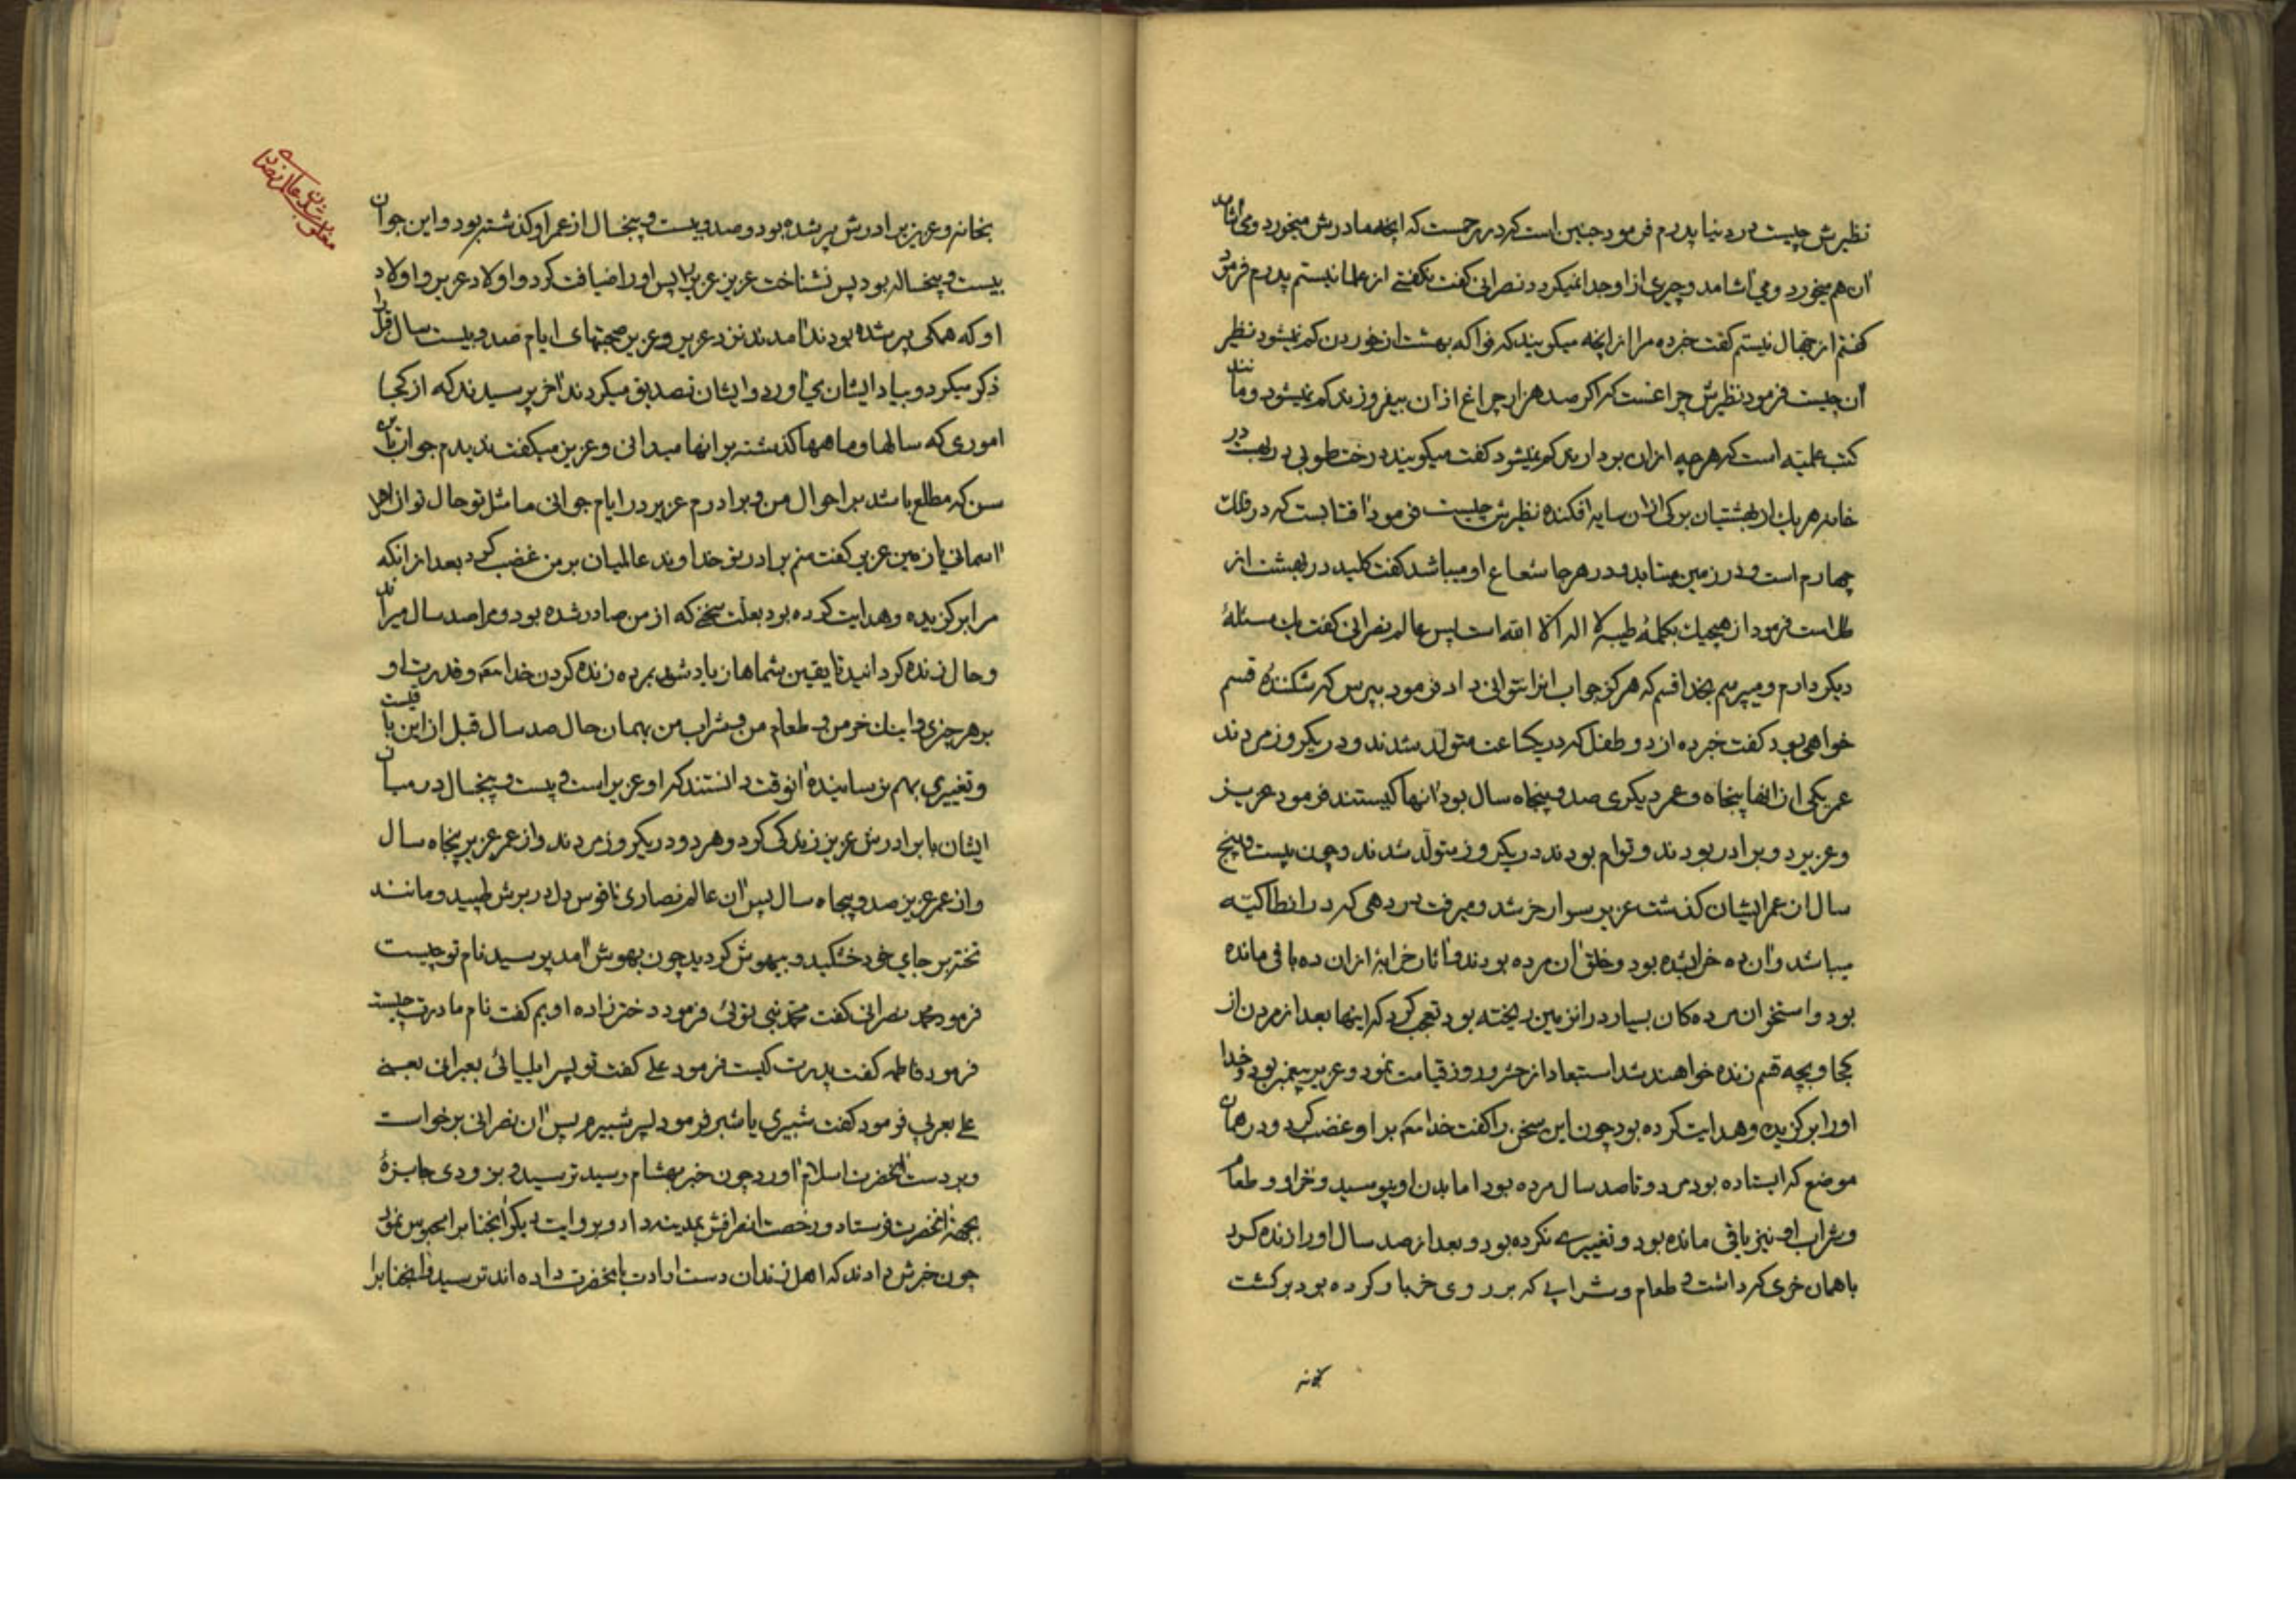 نظیرش چیست در دنیا پدرم فرمود جنین است که در رحمست که انچه مادرش میخورد و می اشامد
ان هم میخورد و می اشامد و چیزی از او جدا نمیکردد نصرانی کفت نکفتے از علما نیستم پدرم فرمود
کفتم از جهال نیستم کفت خبر ده مرا از انچه میکویند که فواکه بهشت از خوردن کم نمیشود نظیر
ان چیست فرمود نظیرش چراغست که اکر صد هزار چراغ از ان بیفروزند کم نمیشود و مانند
کتب علمیه است که هرچه از ان بردارند کم نمیشود کفت میکویند درخت طوبی در بهشت در
خانه هر یك از بهشتیان برکی از ان سایه افکنده نظیرش چیست فرمود افتابست که در فلك
چهارم است و در زمین میتابد و در هرجا شعاع او میباشد کفت کلید در بهشت از
طلا است فرمود از هیچیك بکلمهٔ طیبه لا اله الا الله است پس عالم نصرانی کفت یك مسئلهٔ
دیکر دارم و میپرسم بخدا قسم که هرکز جواب انرا نتوانی داد فرمود بپرس که شکنندهٔ قسم
خواهی بود کفت خبر ده از دو طفل که در یکساعت متولد شدند و در یکروز مردند
عمر یکی از انها پنجاه و عمر دیکری صد و پنجاه سال بود انها کیستند فرمود عزیز
و عزیر دو برادر بودند و توام بودند در یکروز متولد شدند و چون بیست و پنج
سال از عمر ایشان کذشت عزیر سوار خر شد و میرفت بر دهی که در انطاکیه
میباشد و ان ده خراب شده بود و خلق ان مرده بودند و اثار خرابه از ان ده باقی مانده
بود و استخوان مرده کان بسیار در انزمین ریخته بود تعجب کرد که اینها بعد از مردن از
کجا و بچه قسم زنده خواهند شد استبعاد از حشر و روز قیامت نمود و عزیر پیغمبر بود و خدا
اورا برکزیده و هدایت کرده بود چون این سخن را کفت خدایتعم بر او غضب کرد و در همان
موضع که ایستاده بود مرد و تا صد سال مرده بود اما بدن او نپوسید و خر او و طعام
و شراب او نیز باقی مانده بود و تغییرے نکرده بود و بعد از صد سال اورا زنده کرد
با همان خری که داشت و طعام و شرابے که بر روی خر بار کرده بود برکشت
بخانه
بخانه و عزیز برادرش پیر شده بود و صد و بیست و پنجسال از عمر او کذشته بود و این جوان
بیست و پنجساله بود پس نشناخت عزیز عزیر را پس اورا ضیافت کرد و اولاد عزیر و اولاد
او که همکی پیر شده بودند امدند نزد عزیر و عزیر صحبتهای ایام صد و بیست سال قبل را
ذکر میکرد و بیاد ایشان می اورد و ایشان تصدیق میکردند اخر پرسیدند که از کجا
اموری که سالها و ماهها کذشته بر انها میدانی و عزیز میکفت ندیدم جوان باین
سن که مطلع باشد بر احوال من و برادرم عزیر در ایام جوانی ما مثل تو حال تو از اهل
اسمانی یا زمین عزیر کفت منم برادر تو خداوند عالمیان بر من غضب کرد بعد از انکه
مرا برکزیده و هدایت کرده بود بعلت سخنے که از من صادر شده بود و مرا صد سال میراند
و حال زنده کردانید تا یقین شماها زیاد شود بمرده زنده کردن خدایتعم و قدرت او
بر هر چیزی و اینك خر من و طعام من و شراب من بهمان حال صد سال قبل از این باقیست
و تغییری بهم نرسانیده انوقت دانستند که او عزیر است و بیست و پنجسال در میان
ایشان با برادرش عزیز زندکی کرد و هر دو در یکروز مردند و از عمر عزیر پنجاه سال
و از عمر عزیز صد و پنجاه سال پس ان عالم نصاری ناقوس دل در برش طپید و مانند
تخته بر جای خود خشکید و بیهوش کردید چون بهوش امد پرسید نام تو چیست
فرمود محمد نصرانی کفت محمد نبی توئی فرمود دخترزاده اویم کفت نام مادرت چیست
فرمود فاطمه کفت پدرت کیست فرمود علے کفت تو پسر ایلیائی بعبرانی یعنے
علے بعربی فرمود کفت شبیری یا شبر فرمود پسر شبیرم پس ان نصرانی برخواست
و بر دست انحضرت اسلام اورد چون خبر بهشام رسید ترسید و بزودی جایزهٔ
بجهة انحضرت فرستاد و رخصت انصرافش بمدینه داد و بروایت دیکر انجنابرا محبوس نمود
چون خبرش دادند که اهل زندان دست ارادت بانحضرت داده اند ترسید و انجنابرا